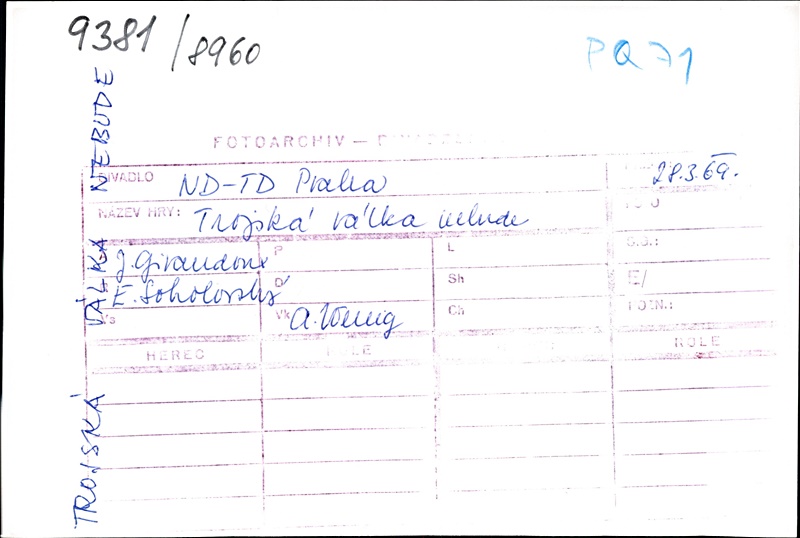 9381/8960
PQ71
TROJSKÁ VÁLKA NEBUDE
FOTOARCHIV —
DIVADLO ND-TD Praha 28.3.69.
NÁZEV HRY: Trojská válka nebude
J. Giraudoux P L
E. Sokolovský Sh E/
Vs Vk A. Wenig Ch POZN.:
HEREC ROLE ROLE